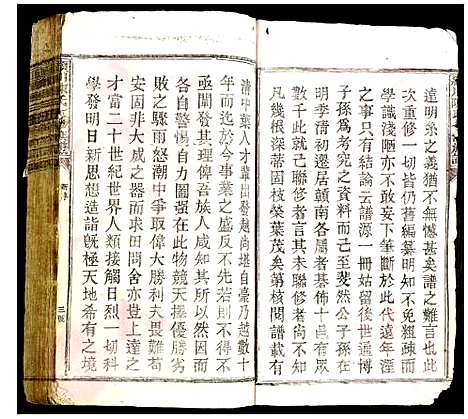 遠明糸之義猶不無憾甚矣譜之難言也此
次重修一切皆仍舊編纂明知不免粗疎而
學識淺陋亦不敢妄下筆斷於此代遠年湮
之事只有結論云譜源一冊姑留後世通博
子孫爲考究之資料而已至斐然公子孫在
明季清初遷居贛南各屬者棊佈十邑有原
數人於此就已聯修者言其未聯修者尚不
凡幾根深蒂固枝榮葉茂矣第核閱譜載有
清中葉人才輩出發越尚堪自豪乃越數十
年而至於今事業之盛反不如前則不得不
亟闡發其理俾吾族人咸知其所以然而後
各自驚惕自力圖强在此物競天擇優勝劣
敗之驟雨怒潮中爭取偉大勝利夫畏難苟
安固非大成之器而求田問舍亦豈上達之
才當二十世紀世界人類接觸日烈一切科
學發明日新思想造詣旣極天地希有之境
三